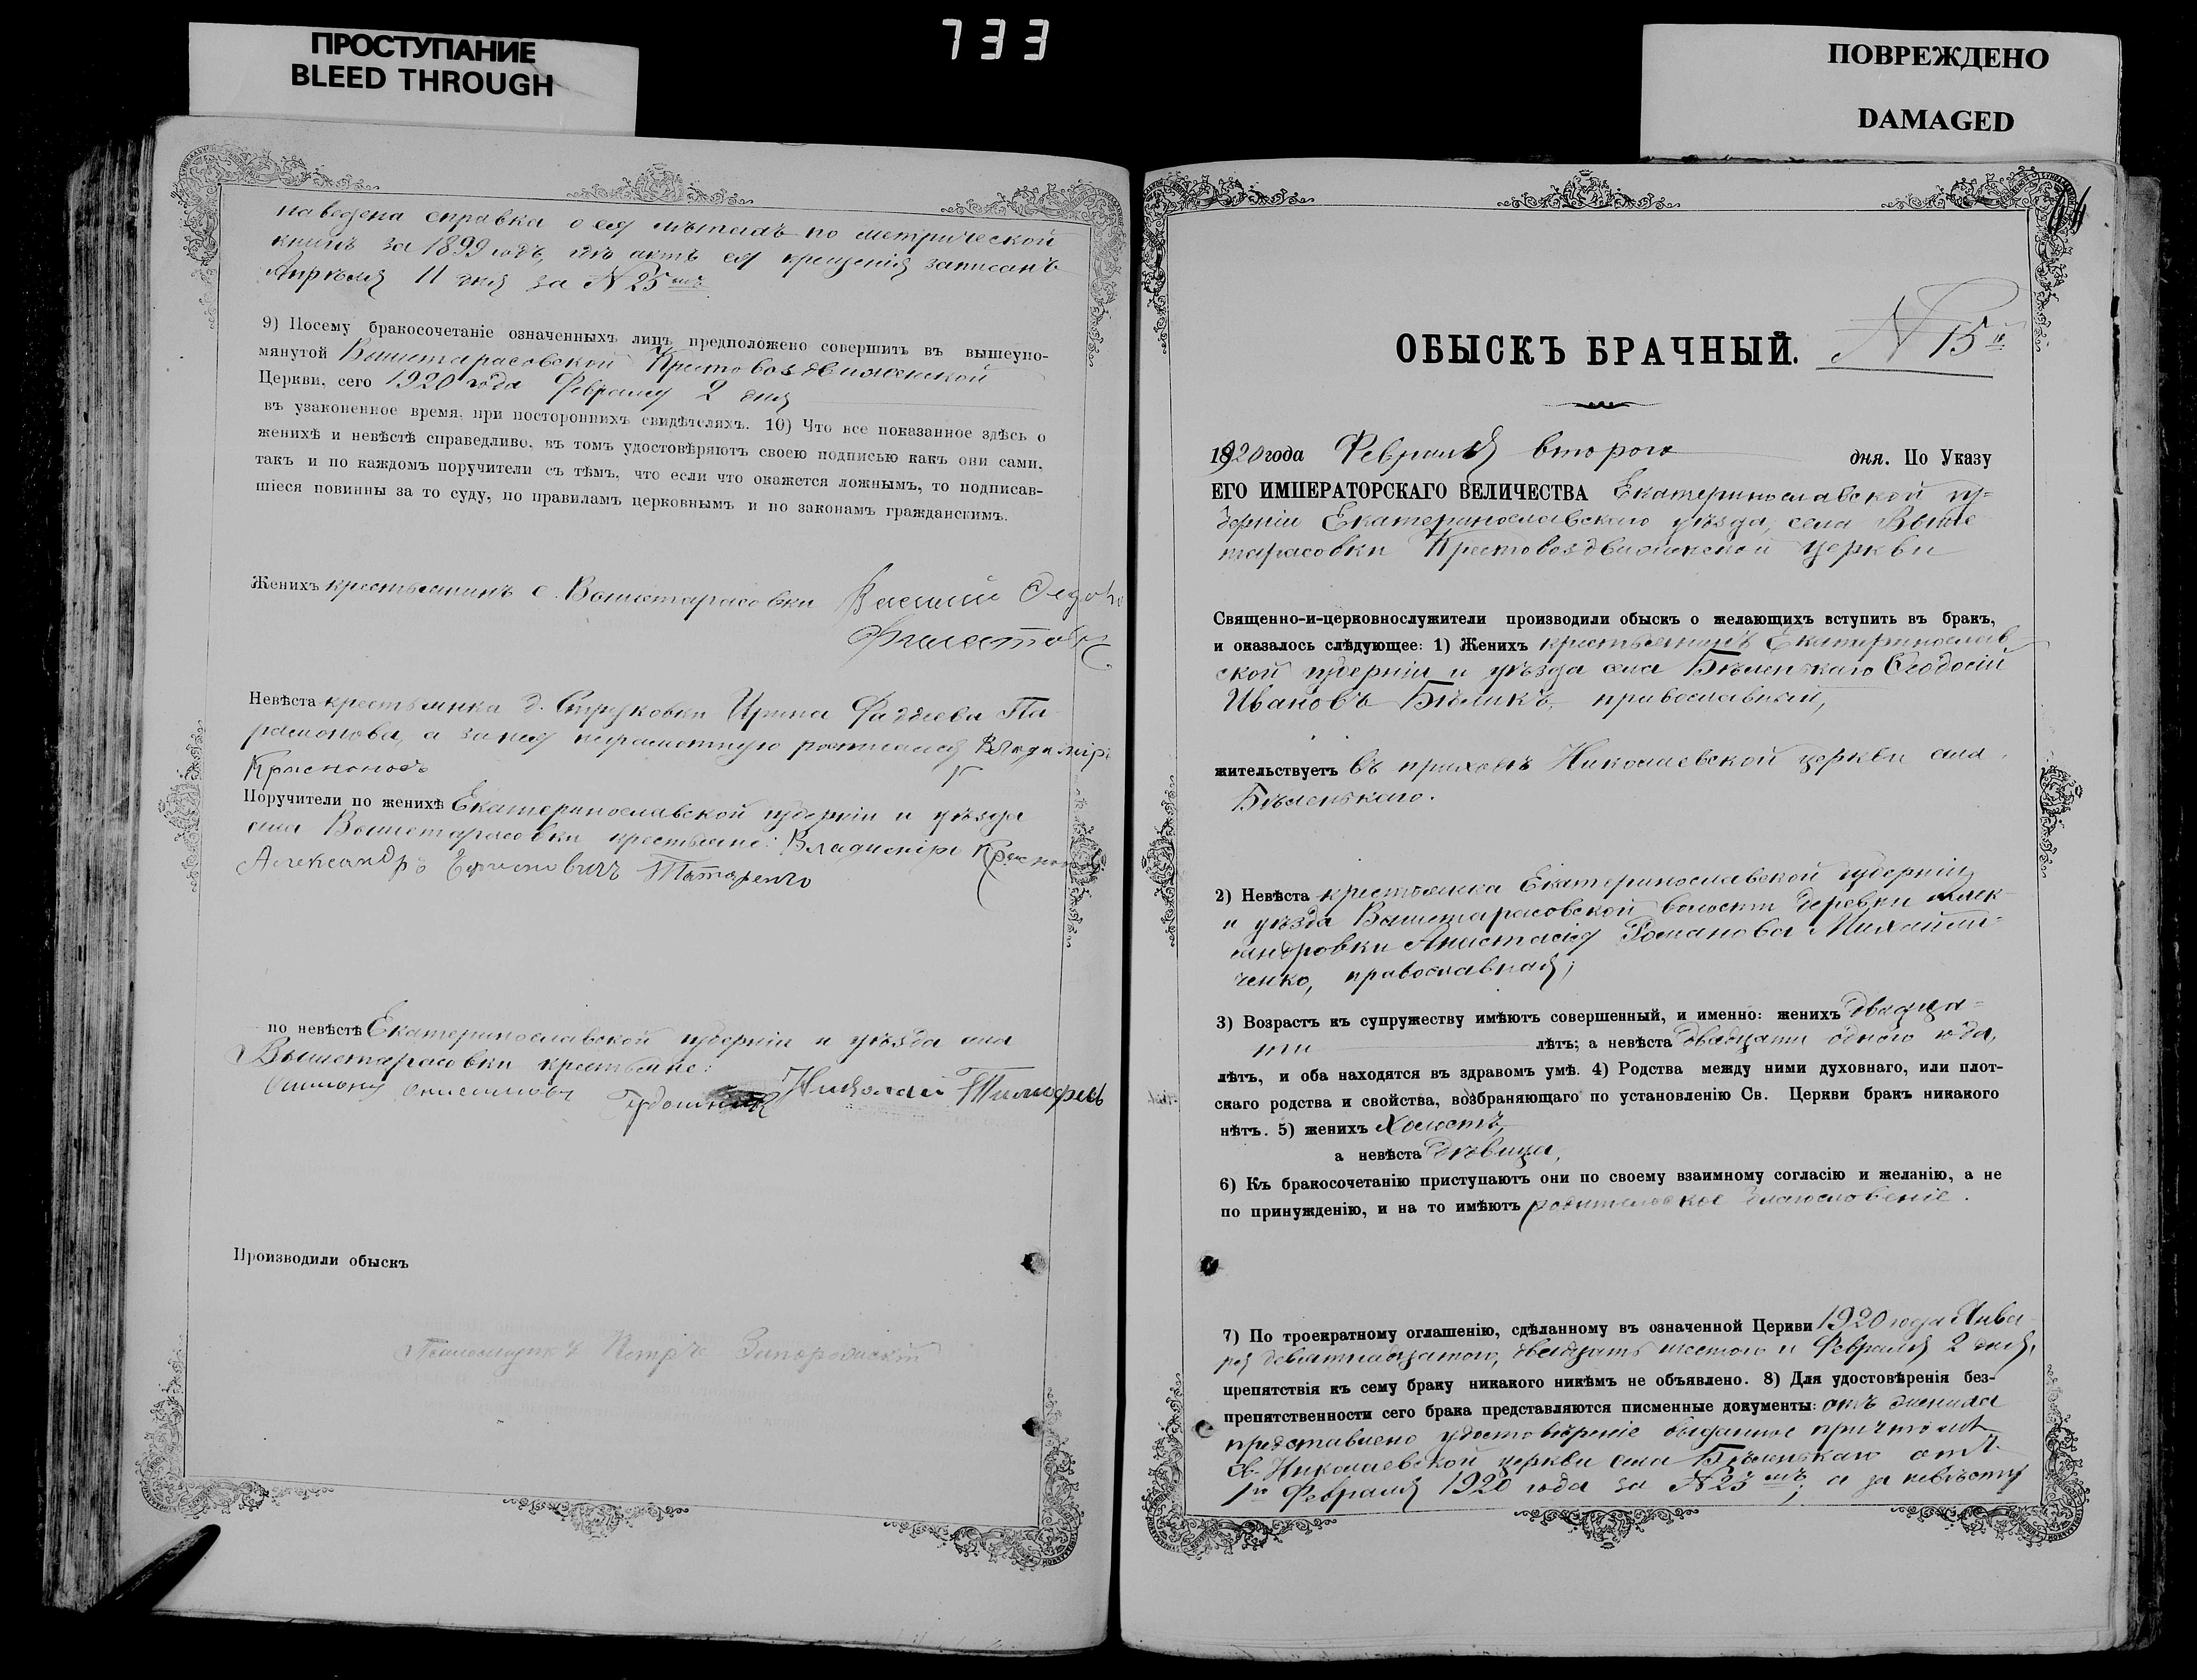 ПРОСТУПАНИЕ
BLEED THROUGH
733
ПОВРЕЖДЕНО
DAMAGED
наведена справка о ея лѣтахъ по метрической
книгѣ за 1899 годъ, гдѣ актъ ея крещенія записанъ
Апрѣля 11 дня за № 25 мъ
9) Посему бракосочетаніе означенныхъ лицъ предположено совершить въ вышеупо-
мянутой Вышетарасовской Крестовоздвиженской
Церкви, сего 1920 года Февраля 2 дня
въ узаконенное время, при постороннихъ свидѣтеляхъ. 10) Что все показанное здѣсь о
женихѣ и невѣстѣ справедливо, въ томъ удостовѣряютъ своею подписью какъ они сами,
такъ и по каждомъ поручители съ тѣмъ, что если что окажется ложнымъ, то подписав-
шіеся повинны за то суду, по правиламъ церковнымъ и по законамъ гражданскимъ.
Женихъ крестьянинъ с. Вышетарасовки Василий
Невѣста крестьянка д. Ирина Фаддеева Па-
рамонова, а за нея неграмотную росписался Владимиръ
Красноносъ
Поручители по женихѣ Екатеринославской губерніи и уѣзда
села Вышетарасовки крестьяне: Владимиръ
Александръ Ефимовичъ Татаренко
по невѣстѣ Екатеринославской губерніи и уѣзда села
Вышетарасовки крестьяне:
Николай Тимофеевъ
Производили обыскъ
Псаломщикъ Петръ Запорожскій
ОБЫСКЪ БРАЧНЫЙ. № 15й
1920 года Февраля второго дня. По Указу
ЕГО ИМПЕРАТОРСКАГО ВЕЛИЧЕСТВА Екатеринославской гу=
берніи Екатеринославскаго уѣзда, села Выше
тарасовки Крестовоздвиженской церкви
Священно-и-церковнослужители производили обыскъ о желающихъ вступить въ бракъ,
и оказалось слѣдующее: 1) Женихъ крестьянинъ Екатеринослав
ской губерніи и уѣзда села Бѣленькаго Ѳеодосій
Ивановъ Бѣликъ, православный,
жительствуетъ въ приходѣ Николаевской церкви села
Бѣленькаго.
2) Невѣста крестьянка Екатеринославской губерніи
и уѣзда Вышетарасовской волости деревни Алек
сандровки Анастасія Романова Михайли=
ченко, православная;
3) Возрастъ къ супружеству имѣютъ совершенный, и именно: женихъ двадца=
ти лѣтъ; а невѣста двадцати одного года,
лѣтъ, и оба находятся въ здравомъ умѣ. 4) Родства между ними духовнаго, или плот-
скаго родства и свойства, возбраняющаго по установленію Св. Церкви бракъ никакого
нѣтъ. 5) женихъ холостъ,
а невѣста дѣвица,
6) Къ бракосочетанію приступаютъ они по своему взаимному согласію и желанію, а не
по принужденію, и на то имѣютъ родительское благословеніе.
7) По троекратному оглашенію, сдѣланному въ означенной Церкви 1920 года Янва-
ря девятнадцатого, двадцать шестого и Февраля 2 дня,
препятствія къ сему браку никакого никѣмъ не объявлено. 8) Для удостовѣренія без-
препятственности сего брака представляются писменные документы: отъ жениха
представлено удостовѣреніе выданное причтомъ
св. Николаевской церкви села Бѣленькаго отъ
1го Февраля 1920 года за № 23 мъ; а за невѣсту